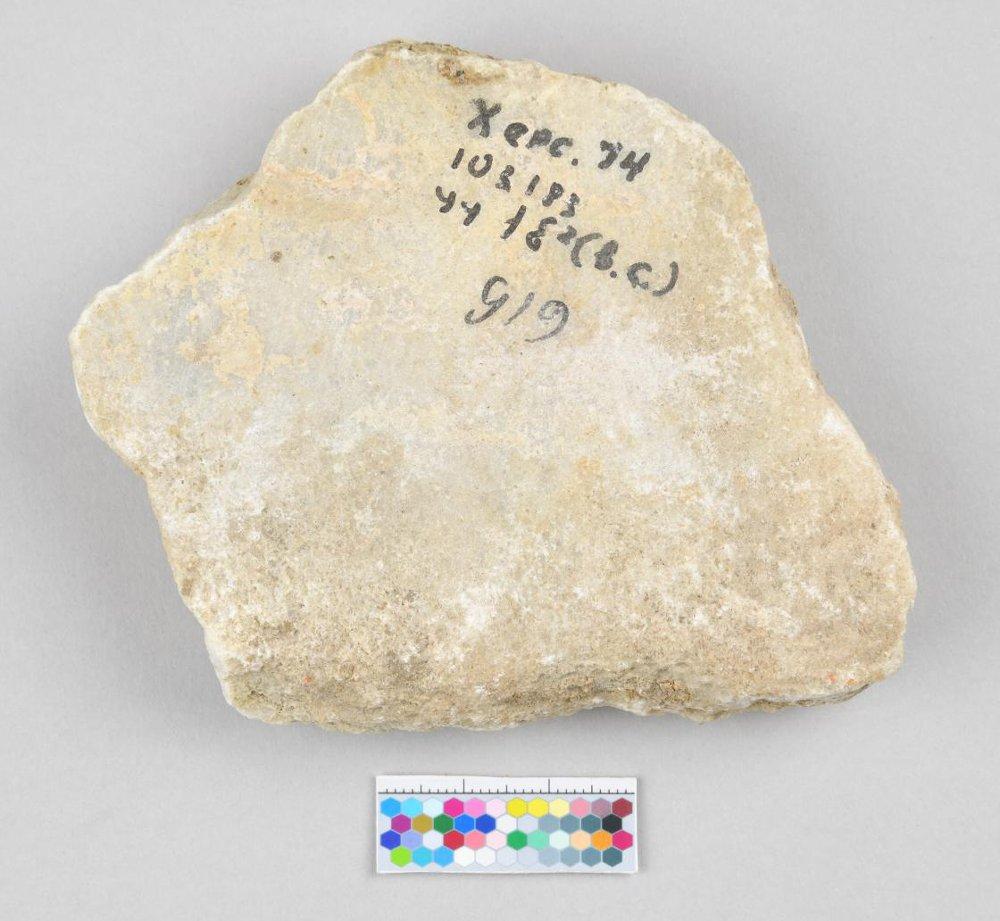 Херс. 74
103183
УЧ 18²(В.С.)
G19